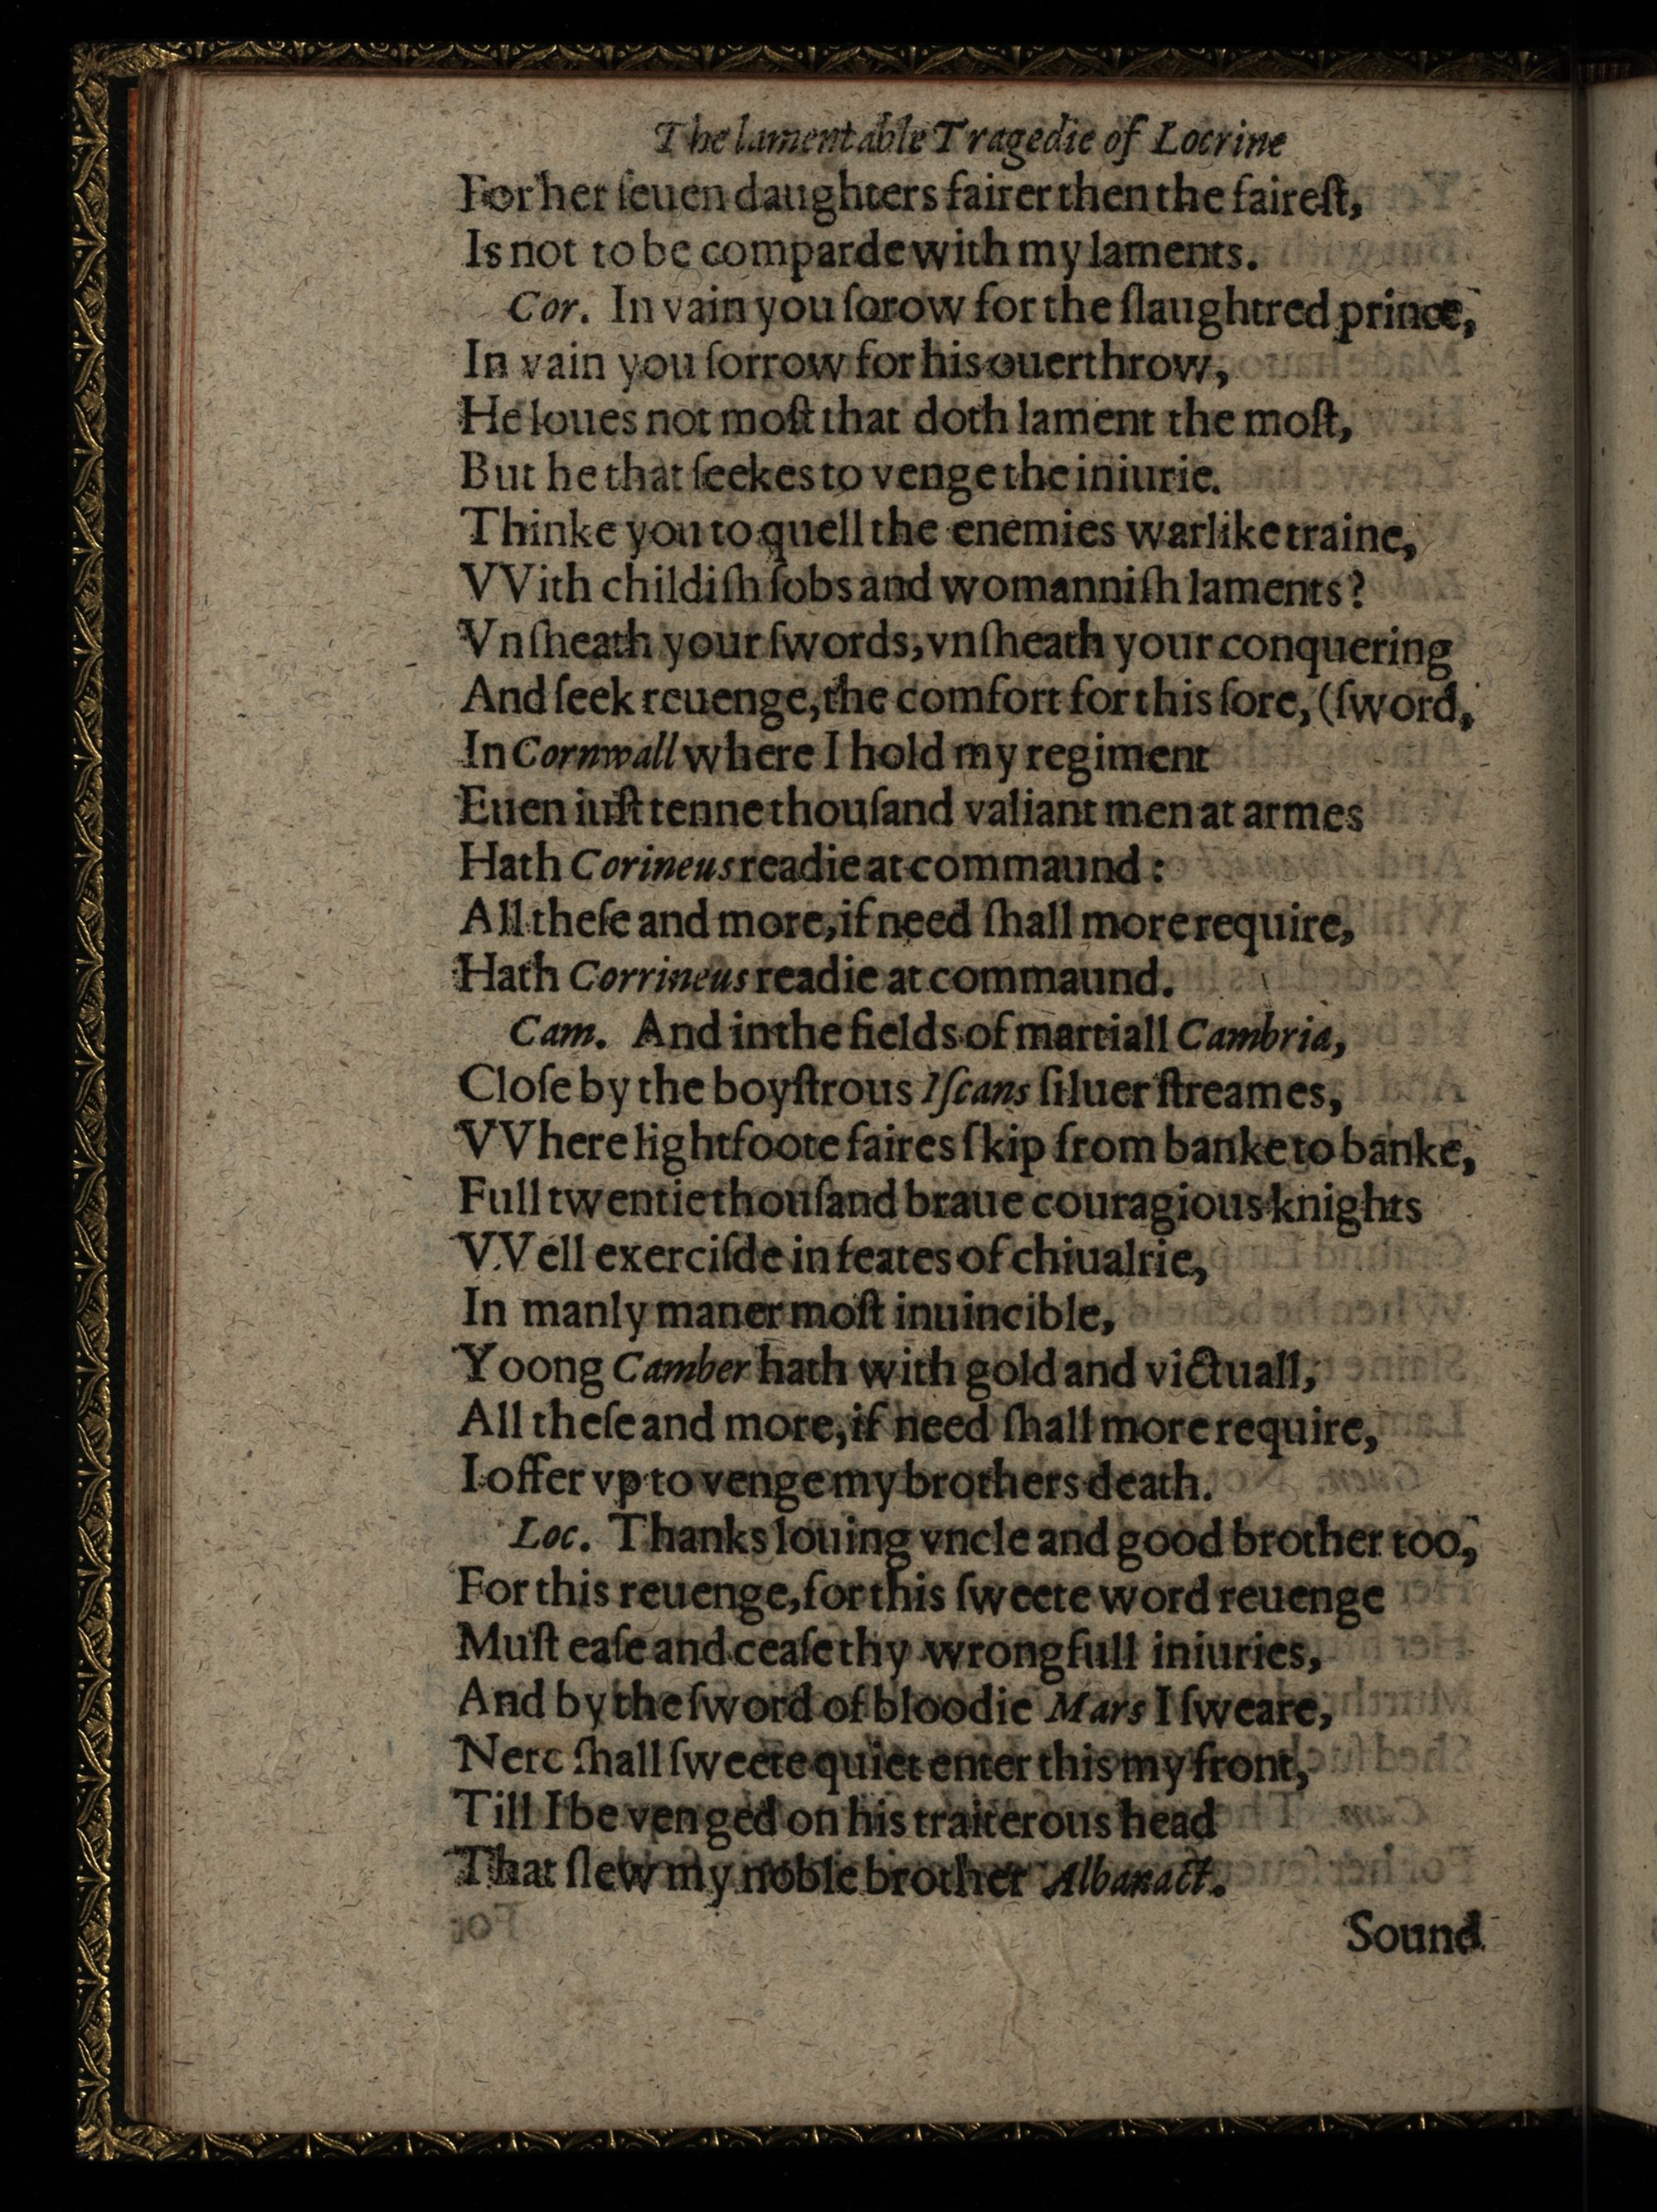 The lamentable Tragedie of Locrine
For her ſeuen daughters fairer then the faireſt,
Is not to be comparde with my laments.
Cor. In vain you ſorow for the ſlaughtred prince,
In vain you ſorrow for his ouerthrow,
He loues not moſt that doth lament the moſt,
But he that ſeekes to venge the iniurie.
Thinke you to quell the enemies warlike traine,
VVith childiſh ſobs and womanniſh laments?
Vnſheath your ſwords, vnſheath your conquering
And ſeek reuenge, the comfort for this ſore, (ſword,
In Cornwall where I hold my regiment
Euen iuſt tenne thouſand valiant men at armes
Hath Corineus readie at commaund:
All theſe and more, if need ſhall more require,
Hath Corrineus readie at commaund.
Cam. And in the fields of martiall Cambria,
Cloſe by the boyſtrous Iſcans ſiluer ſtreames,
VVhere lightfoote faires ſkip from banke to banke,
Full twentie thouſand braue couragious knights
VVell exerciſde in feates of chiualrie,
In manly maner moſt inuincible,
Yoong Camber hath with gold and victuall,
All theſe and more, if need ſhall more require,
I offer vp to venge my brothers death.
Loc. Thanks louing vncle and good brother too,
For this reuenge, for this ſweete word reuenge
Muſt eaſe and ceaſe thy wrongfull iniuries,
And by the ſword of bloodie Mars I ſweare,
Nere ſhall ſweete quiet enter this my front,
Till I be venged on his traiterous head
That ſlew my noble brother Albanact.
Sound